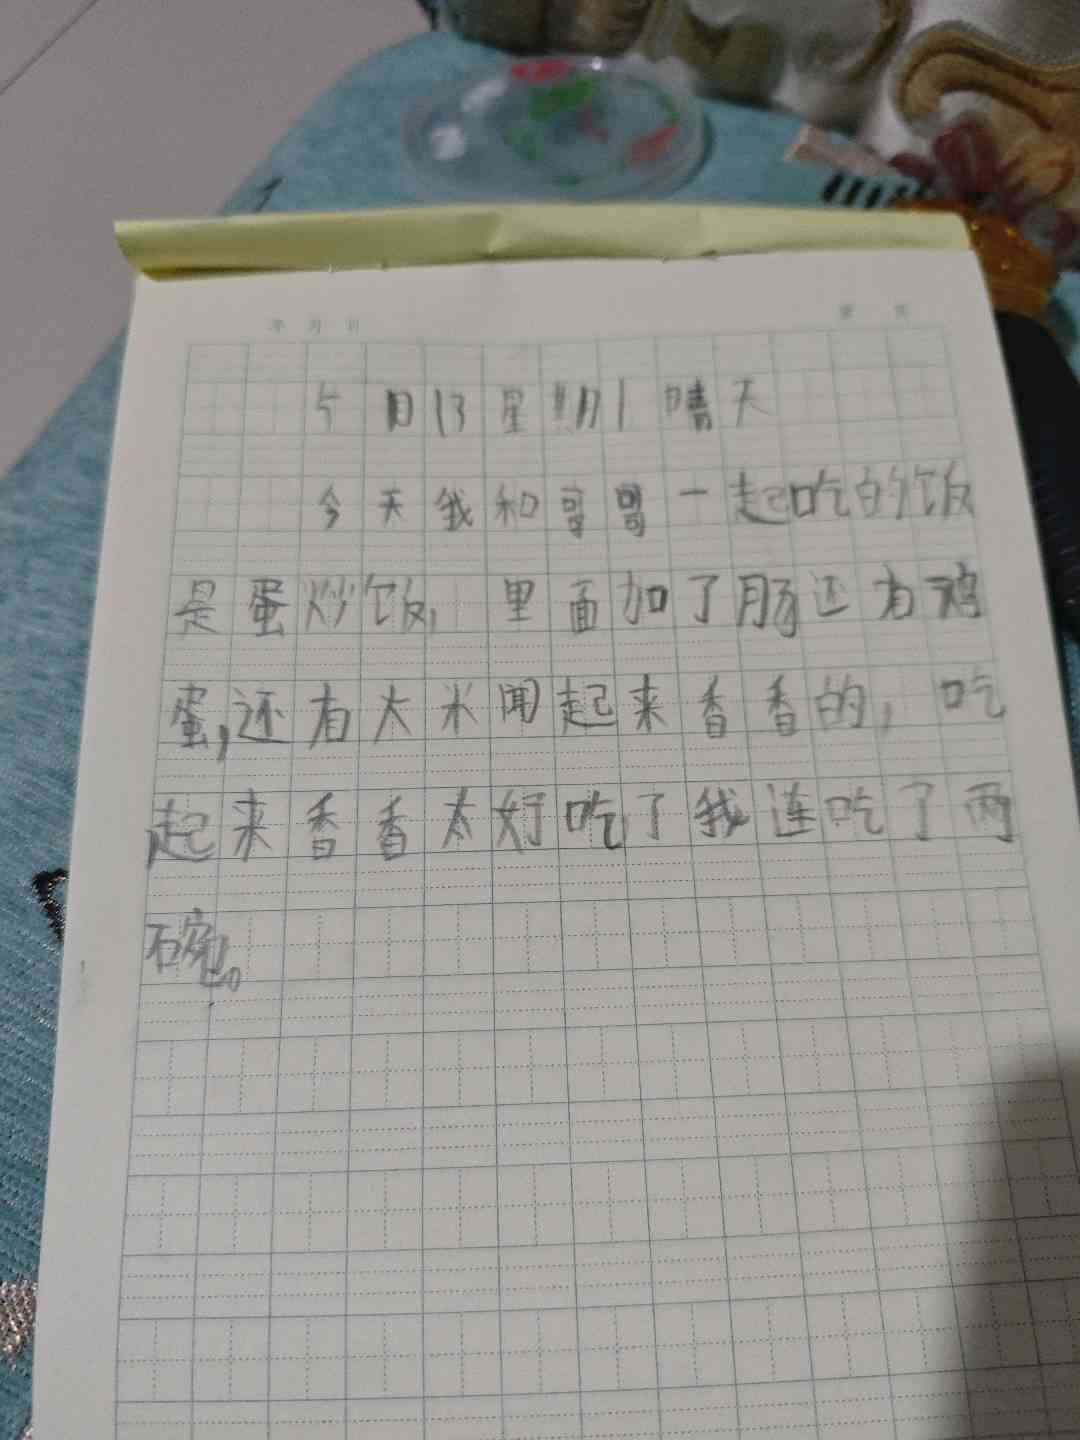 学习日
第 页
5月13星期1晴天
今天我和哥哥一起吃的饭
是蛋炒饭,里面加了肠还有鸡
蛋,还有大米闻起来香香的,吃
起来香香太好吃了我连吃了两
碗。